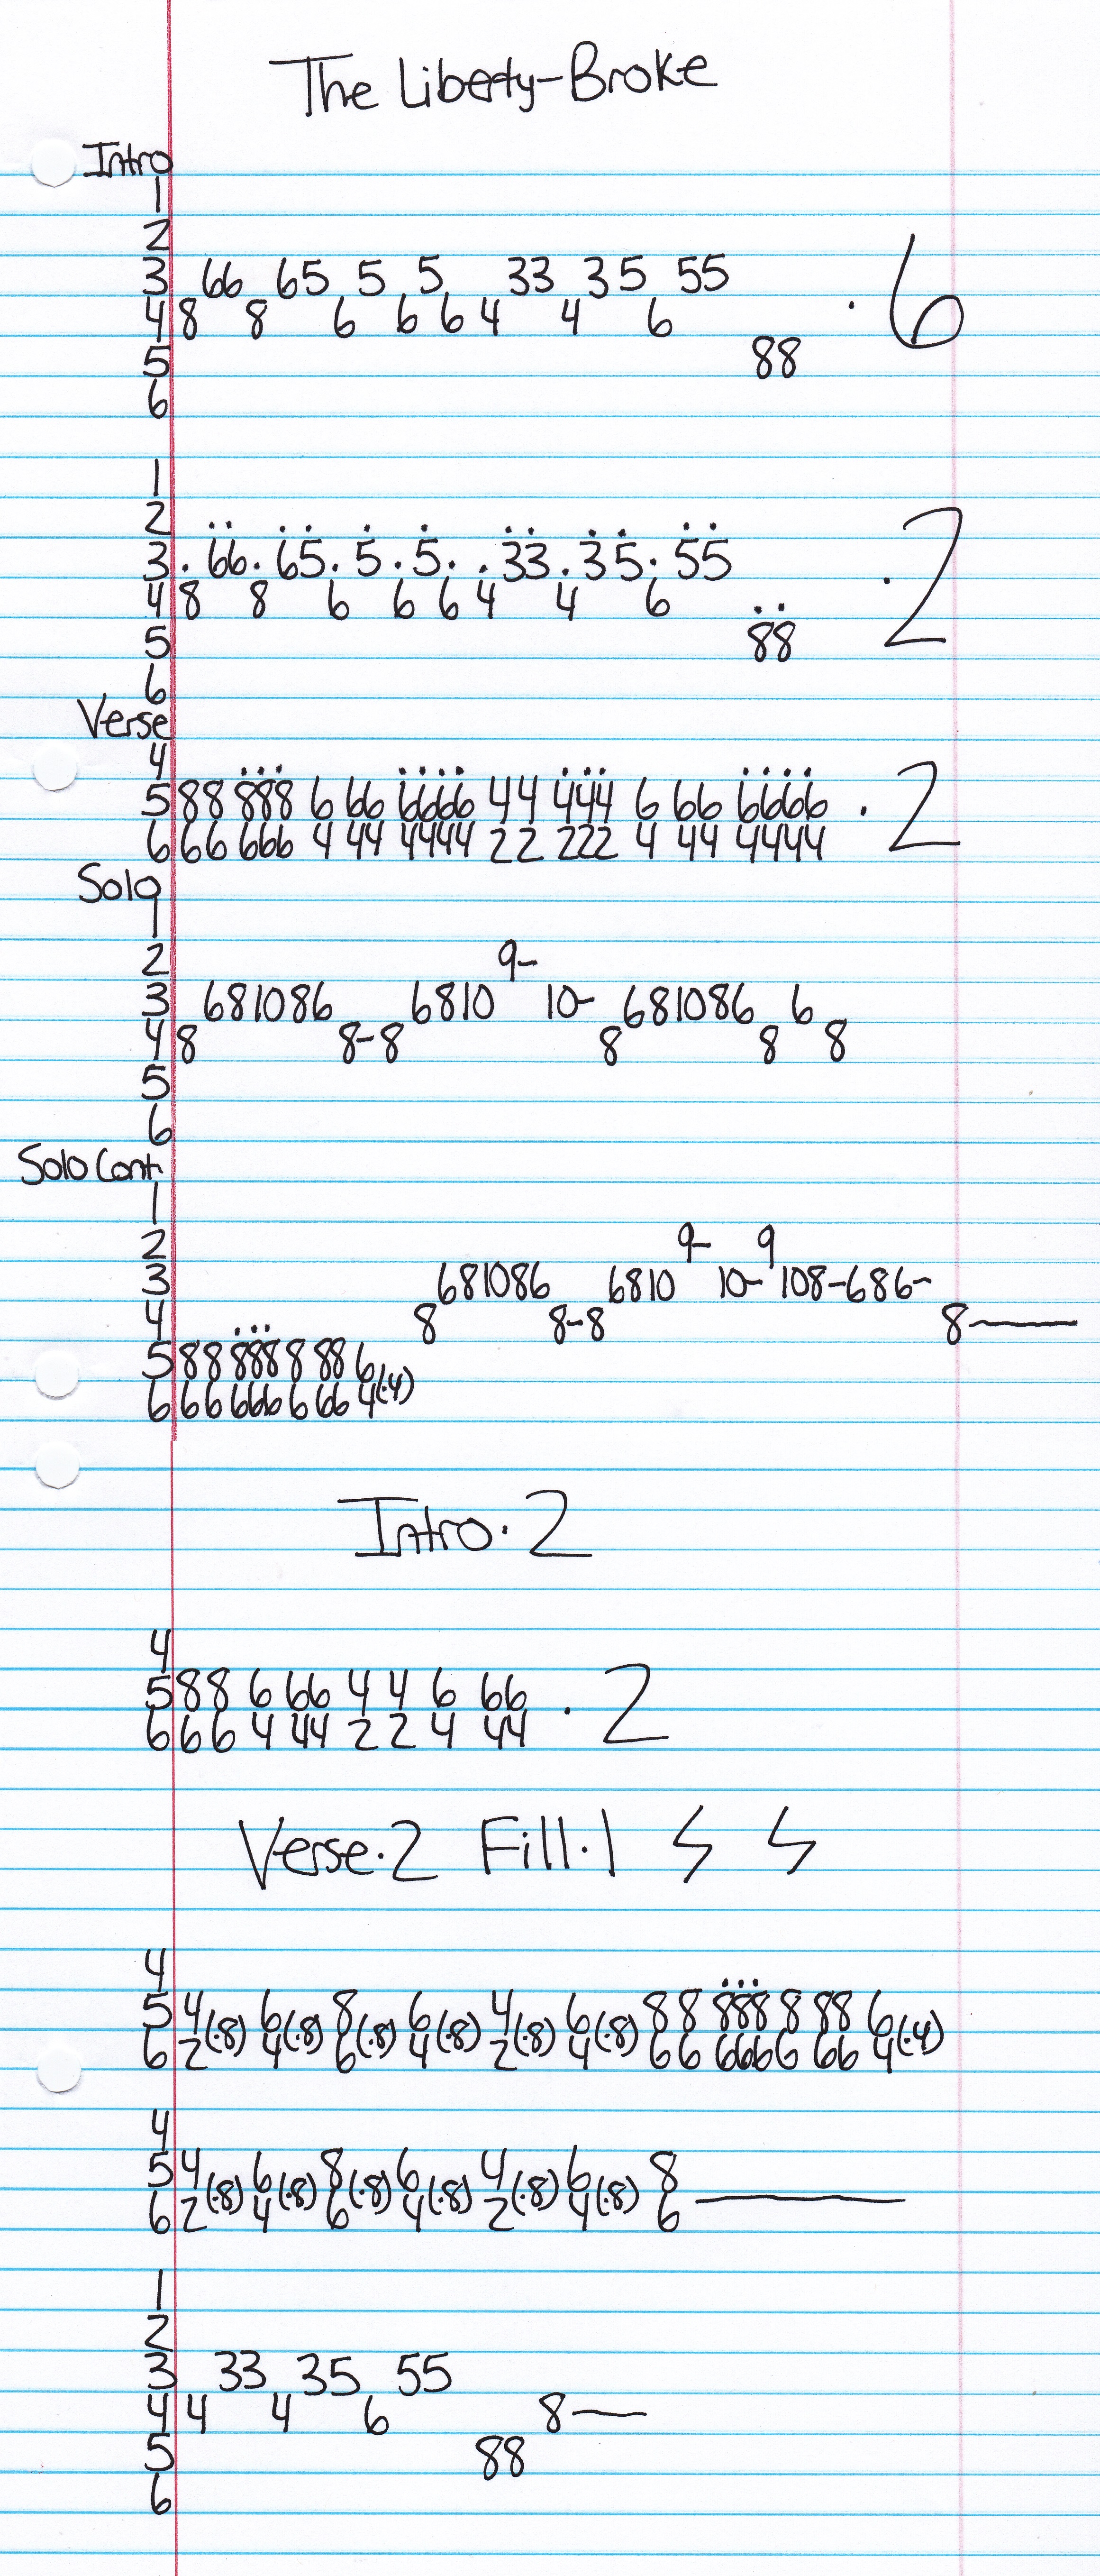 The Liberty-Broke
Intro
1
2
3 66 65 5 5 33 35 55
4 8 8 6 6 6 4 4 6 · 6
5 88
6
1
2
3 · 66 · 65 · 5 · 5 · · 33 · 35 · 55
4 8 8 6 6 6 4 4 6 · 2
5 88
6
Verse
4
5 88 888 6 66 6666 44 444 6 66 6666 · 2
6 66 666 4 44 4444 22 222 4 44 4444
Solo
1
2 9-
3 681086 6810 10- 681086 6
4 8 8-8 8 8 8
5
6
Solo Cont.
1
2 9- 9
3 681086 6810 10- 108-686-
4 8 8-8 8—
5 88 888 8 88 6
6 66 666 6 66 4(·4)
Intro·2
4
5 88 6 66 4 4 6 66 · 2
6 66 4 44 2 2 4 44
Verse·2 Fill·1
4
5 4 6 8 6 4 6 88 888 8 88 6
6 2(·8) 4(·8) 6(·8) 4(·8) 2(·8) 4(·8) 66 666 6 66 4(·4)
4
5 4 6 8 6 4 6 8
6 2(·8) 4(·8) 6(·8) 4(·8) 2(·8) 4(·8) 6 —
1
2
3 33 35 55
4 4 4 6 8—
5 88
6